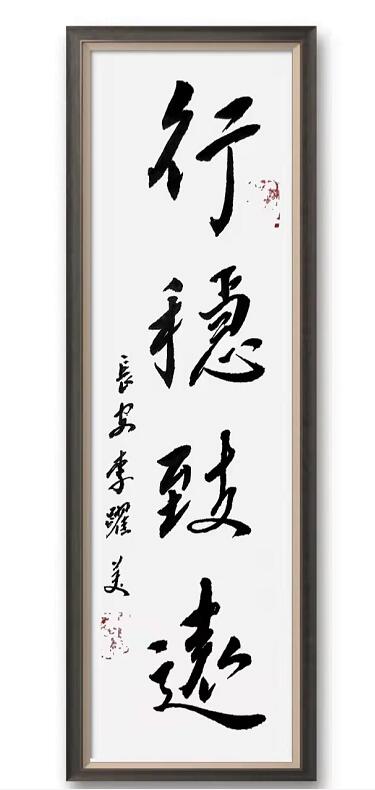 行穩致遠
長安李躍美